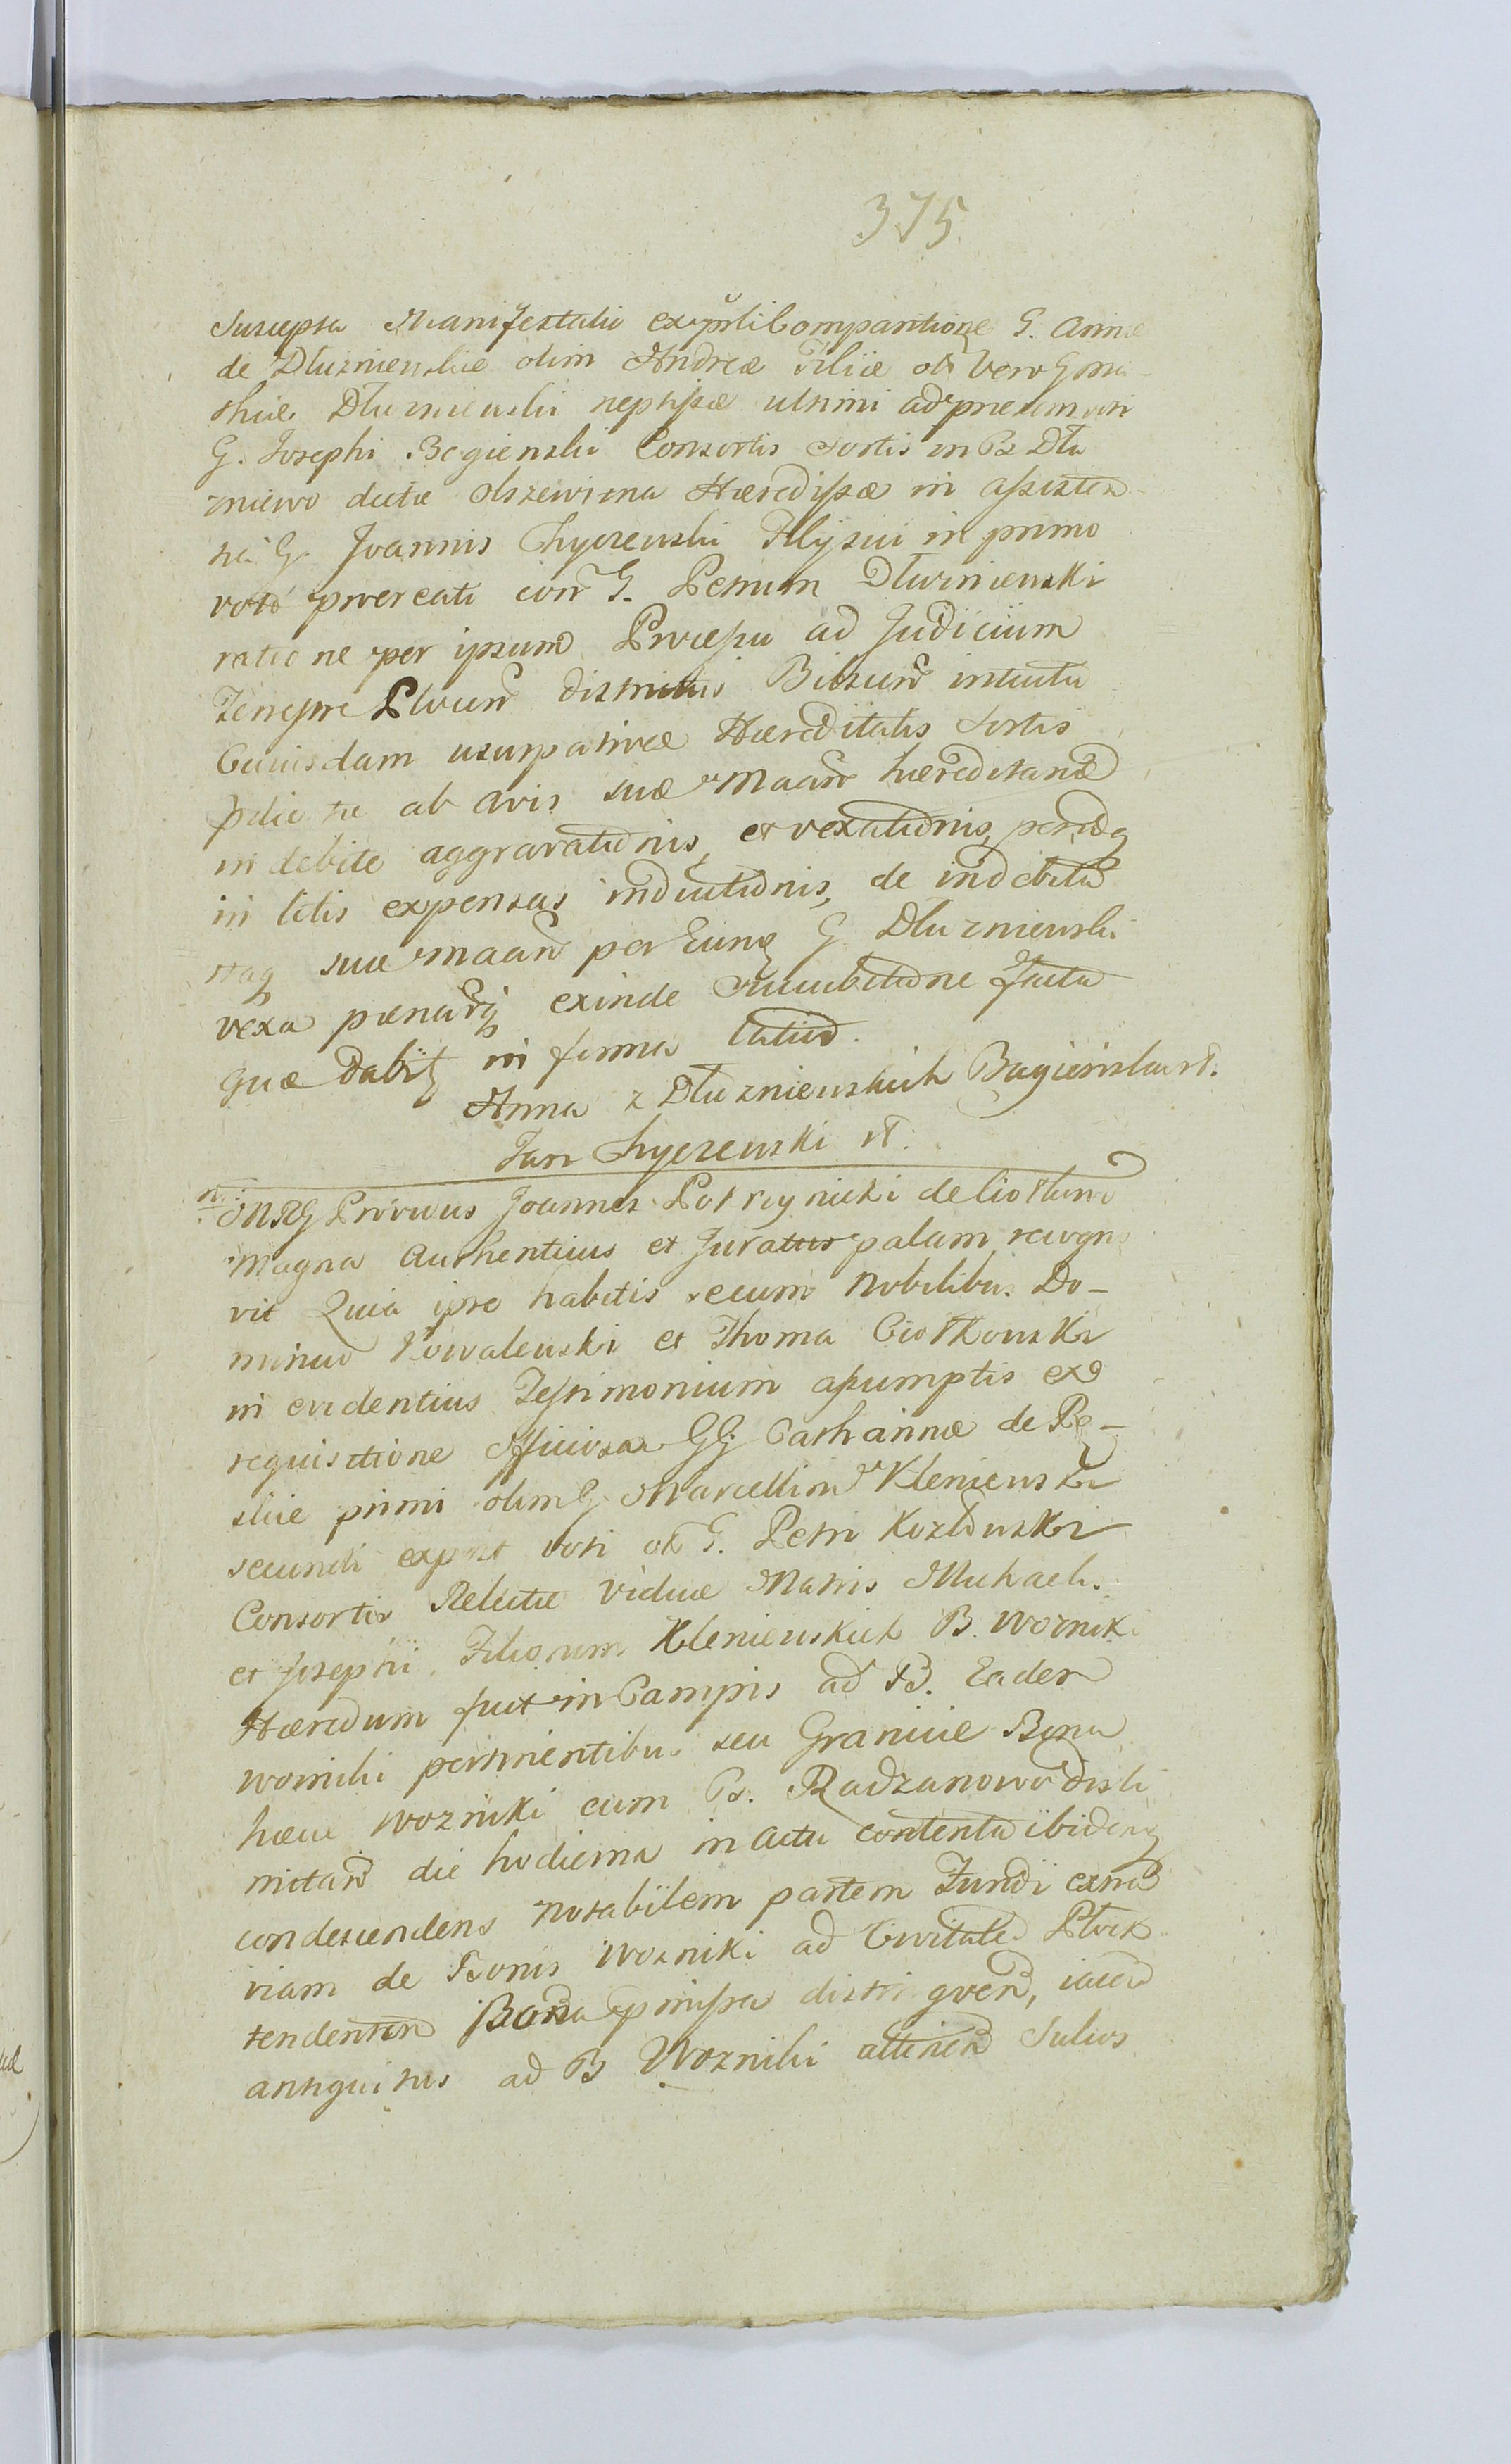 375.
Suscepta Manifestatio ex psli Compartione G. Annæ
de Dłuzniewskie olim Andreæ Filiæ ol Vero G Ma-
thiæ Dłuzniewski neptissæ ultimi ad præsens voti
G. Josephi Bogienski Consortis Sortis in B Dłu
zniewo dictæ Olszewizna Hæredissæ in assisten
tia G. Joannis Chyczewski Filij sui in primo
voto procreati con G. Petrum Dłuzniewski
ratione per ipsum Processu ad Judicium
Terrestre Plocen districtus Bielscen intuitu
Cuiusdam usurpativæ Hæreditatis Sortis
pdictæ ab avis suæ Maan hæreditariæ
indebite aggravationis, et vexationis, perindeq
in litis expensas inductionis, de indebita
itaq sua Maan per Eunq G Dłuzniewski
vexa pænarq exinde Succubitione facta
quæ dabit in forma latiori.
Anna z Dłuzniewskich Bagienska st.
Jan Chyczewski st.
MRG Providus Joannes Potrzynicki de Ciołkowo
Magna Authenticus et Juratus palam recogno
vit Quia ipse habitis secum Nobilibus Do-
minico Kowalewski et Thoma Ciołkowski
in evidentius Testimonium assumptis ex
requisitione officiosa GG Catharinæ de Rę-
skie primi olim G Marcellini Kleniewski
secundi expost voti ol G. Petri Kozłowski
Consortis Relictæ Viduæ Matris Michaeli
et Josephi Filiorum Kleniewskich B. Wozniki
Hæredum fuit in Campis ad B. Eadem
Wozniki pertinentibus seu Graniciæ Bona
hæc Wozniki cum B. Radzanowo disli
mitan die hodierna in Actu contenta ibidemq
condescendens notabilem partem Fundi extra
viam de Bonis Wozniki ad Civitate Płock
tendenten Bona pmissa distinguen, iacen
antiquitus ad B Wozniki attinen Sulcos